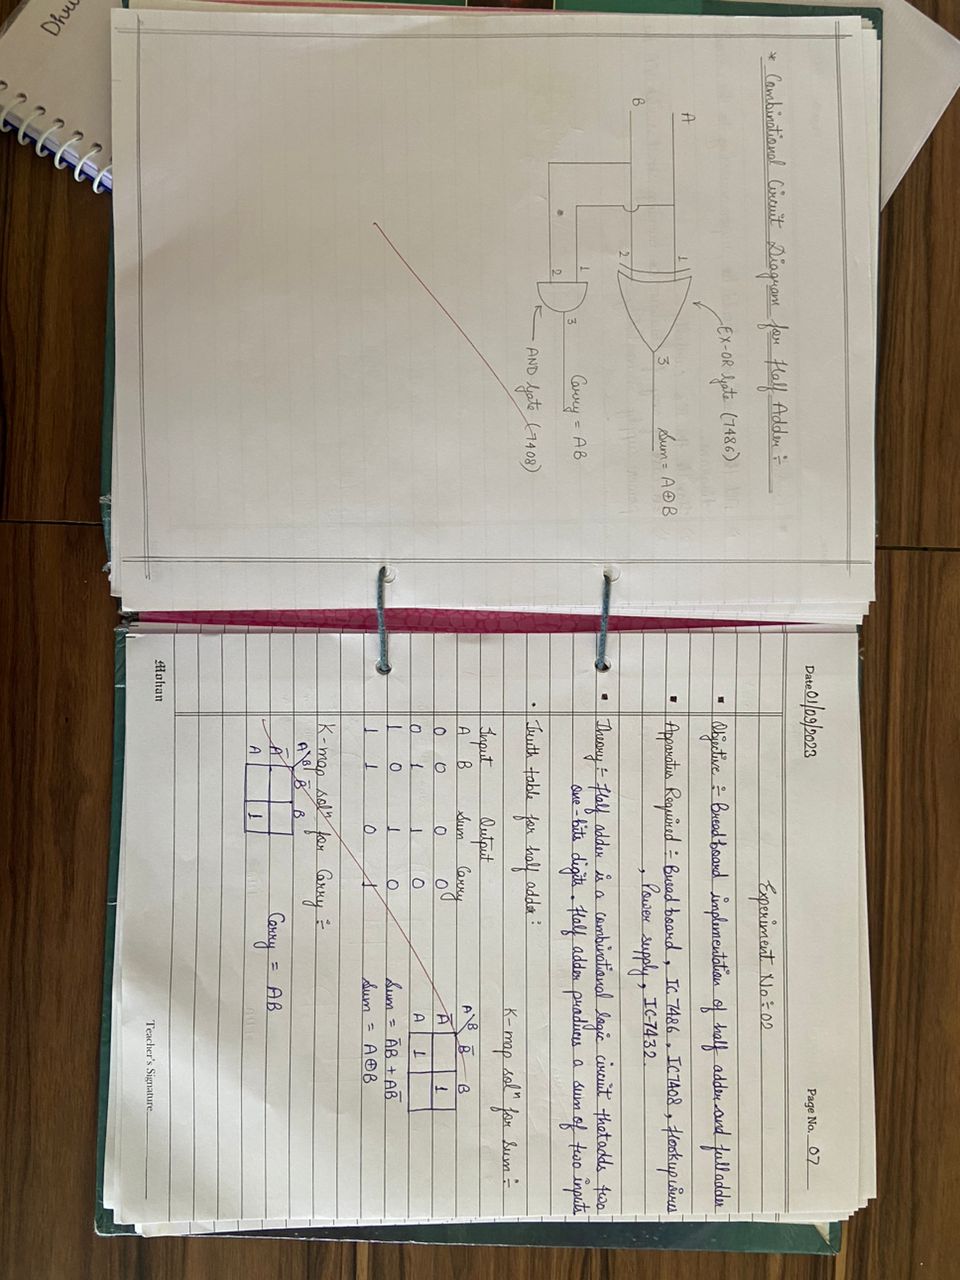 * Combinational Circuit Diagram for Half Adder ÷
EX-OR Gate (7486)
A
1
3
Sum = A⊕B
B
2
1
3
Carry = AB
2
AND Gate (7408)
Date 01/09/2023
Page No. 07
Experiment No ÷ 02
▪ Objective ÷ Bread board implementation of half adder and full adder
▪ Apparatus Required ÷ Bread board , IC 7486 , IC7408 , Hookup wires
, Power supply , IC-7432.
▪ Theory ÷ Half adder is a combinational logic circuit that adds two
one-bits digits . Half adder produces a sum of two inputs
• Truth table for half adder :
K-map solⁿ for Sum ÷
Input Output
A B Sum Carry
0 0 0 0
0 1 1 0
1 0 1 0
1 1 0 1
A B B̅ B
A̅ 1
A 1
Sum = A̅B + AB̅
Sum = A⊕B
K-map solⁿ for Carry ÷
A B B̅ B
A̅
A 1
Carry = AB
Mohan
Teacher's Signature